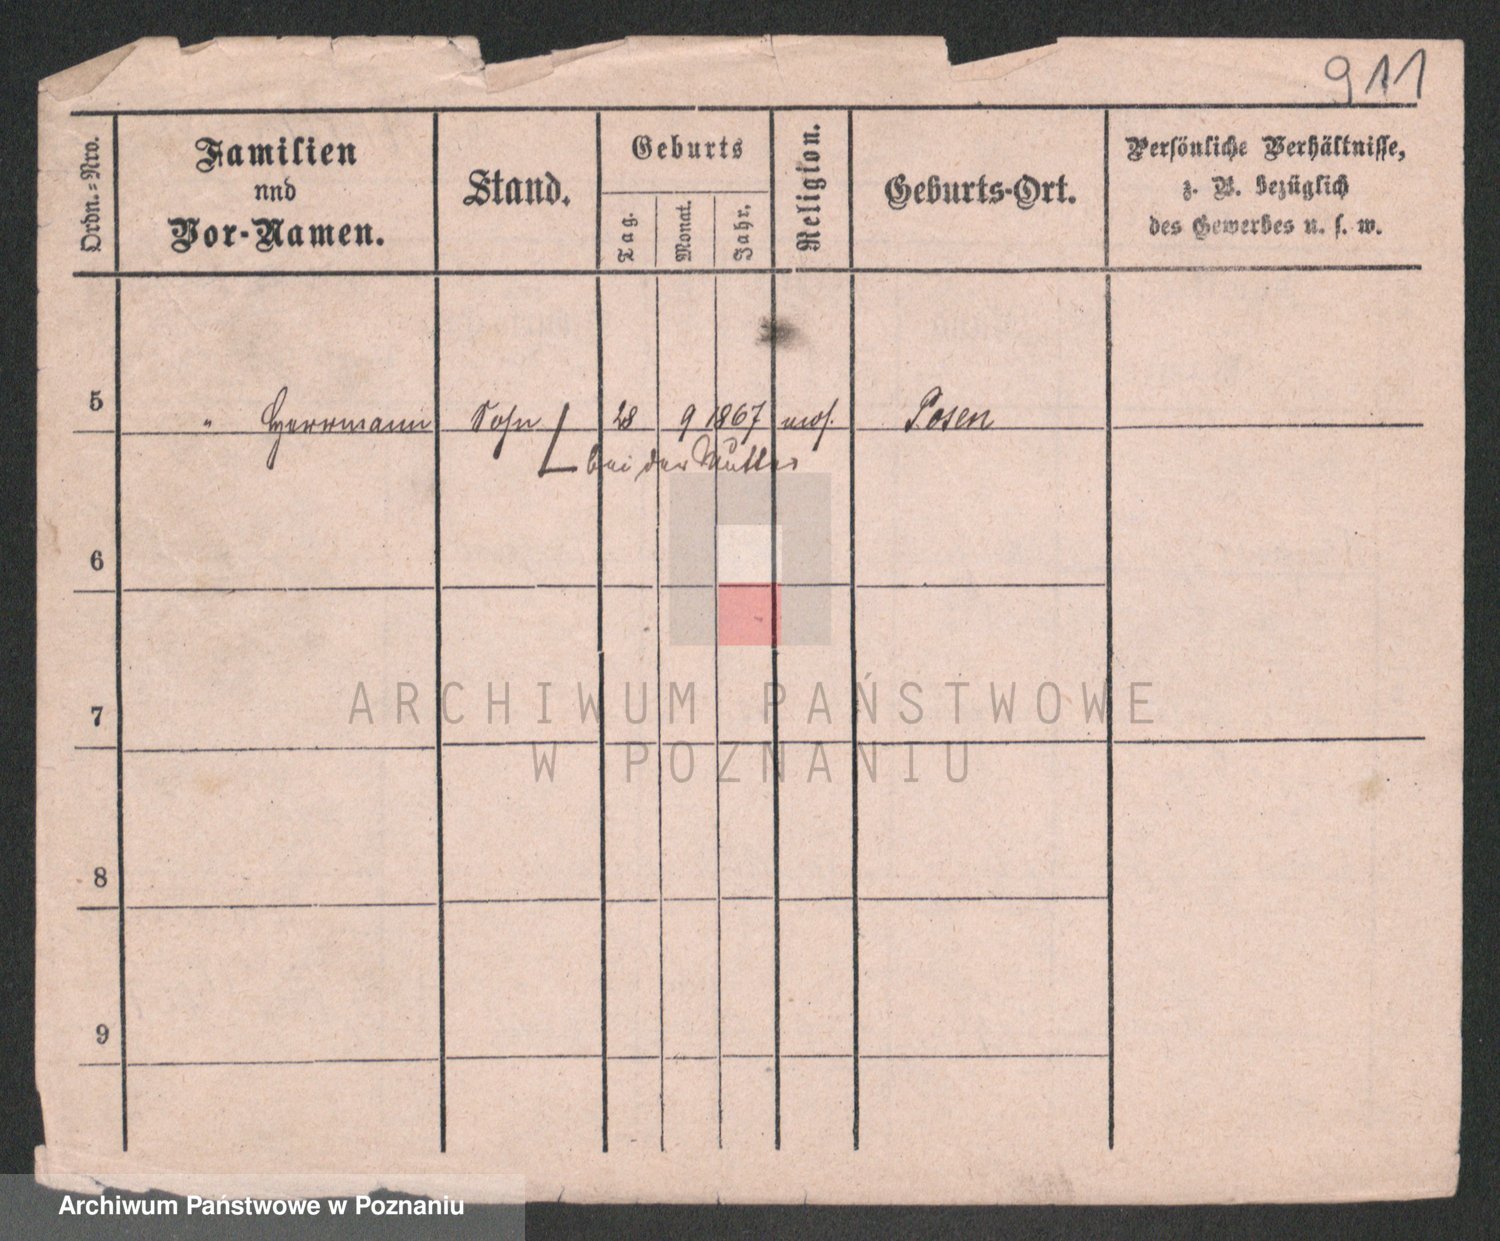 911
Ordn.=Nro.
Familien
nnd
Vor-Namen.
Stand.
Geburts
Tag.
Monat.
Jahr.
Religion.
Geburts-Ort.
Persönliche Verhältnisse,
z. B. bezüglich
des Gewerbes u. s. w.
5 " Herrmann Sohn 28 9 1867 mos. Posen
bei der Mutter
6
7
8
9
ARCHIWUM PAŃSTWOWE
W POZNANIU
Archiwum Państwowe w Poznaniu